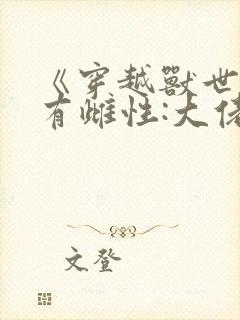 《穿越獸世
有雌性:大佬
文登